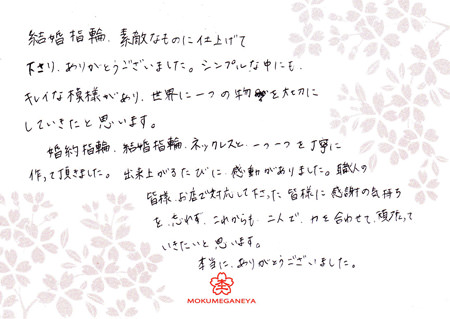 結婚指輪、素敵なものに仕上げて
下さり、ありがとうございました。シンプルな中にも、
キレイな模様があり、世界に一つの物を大切に
していきたと思います。
婚約指輪、結婚指輪、ネックレスと、一つ一つを丁寧に
作って頂きました。出来上がるたびに、感動がありました。職人の
皆様、お店で対応して下さった皆様に感謝の気持ち
を、忘れず、これからも、二人で、力を合わせて、頑張って
いきたいと思います。
本当に、ありがとうございました。
MOKUMEGANEYA